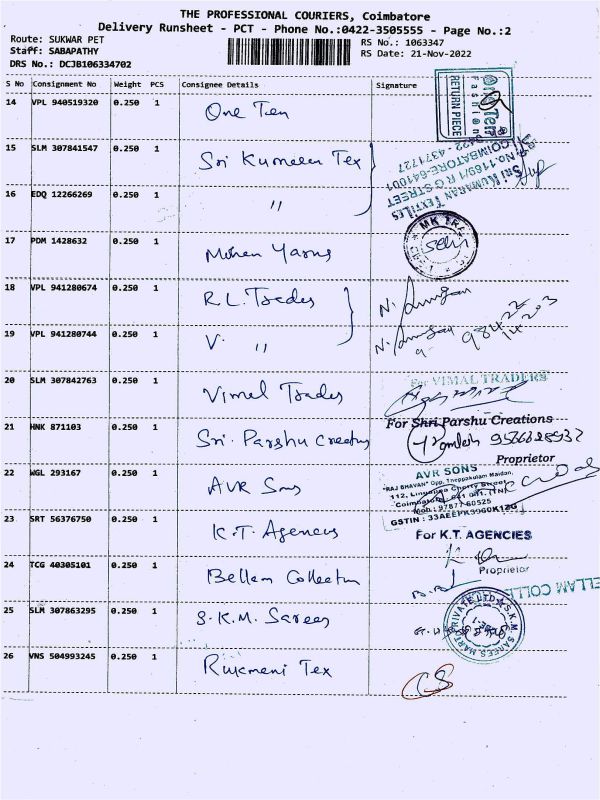 THE PROFESSIONAL COURIERS, Coimbatore
Delivery Runsheet - PCT - Phone No.:0422-3505555 - Page No.:2
Route: SUKWAR PET
Staff: SABAPATHY
DRS No.: DCJB106334702
RS No.: 1063347
RS Date: 21-Nov-2022
S No Consignment No Weight PCS Consignee Details Signature
14 VPL 940519320 0.250 1 One Ten
One Ten
Fashions
RETURN PIECE
15 SLM 307841547 0.250 1 Sri Kumaran Tex
SRI KUMARAN TEXTILES
No.1169/1 R G STREET
COIMBATORE-641001
0422 - 4371727
16 EDQ 12266269 0.250 1 "
17 PDM 1428632 0.250 1 Mohan Yarns
MK TRA
18 VPL 941280674 0.250 1 R.L. Trades
19 VPL 941280744 0.250 1 V. "
20 SLM 307842763 0.250 1 Vimel Trades
For VIMAL TRADERS
21 HNK 871103 0.250 1 Sri. Parshu Creations
For Shri Parshu Creations
Proprietor
22 WGL 293167 0.250 1 AVR Sons
AVR SONS
"RAJ BHAVAN" Opp. Theppakulam Maidan,
112, Lingappa Chetty Street
Coimbatore - 641 001. (TN)
Mob : 97877 60525
GSTIN : 33AEEPK3960K1ZG
23 SRT 56376750 0.250 1 K.T. Agencies
For K.T. AGENCIES
Proprietor
24 TCG 40305101 0.250 1 Bellam Collection
BELLAM COLLE
25 SLM 307863295 0.250 1 S.K.M. Sarees
S.K.M. SAREES MART PRIVATE LTD
26 VNS 504993245 0.250 1 Rukmani Tex